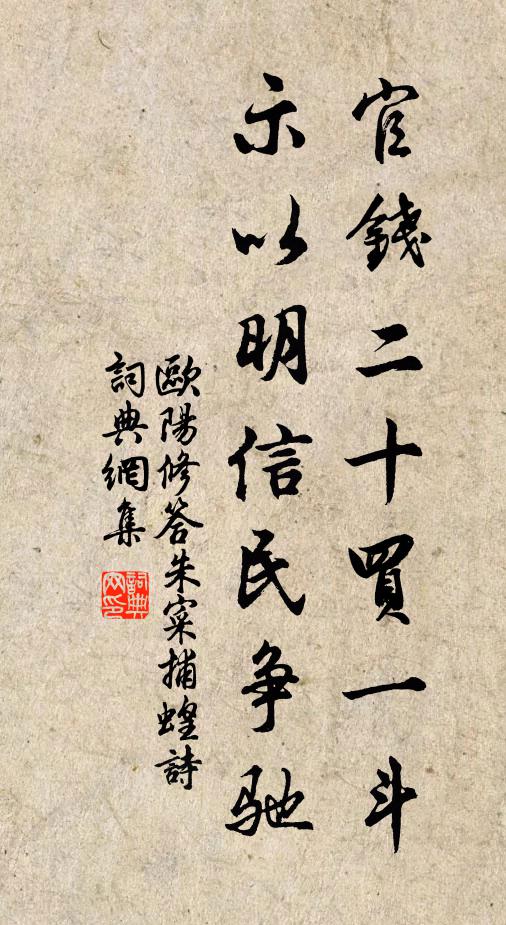 官錢二十買一斗
示以明信民争馳
歐陽修答朱寀捕蝗詩
詞典網集
詞典网印